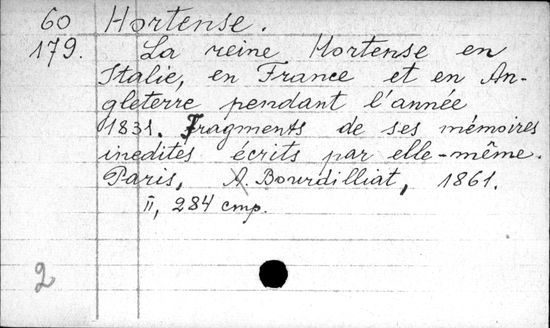 60 Hortense.
179. La reine Hortense en
Italie, en France et en An-
gleterre pendant l'année
1831. Fragments de ses mémoires
inedités écrits par elle-même.
Paris, A. Bourdilliat, 1861.
II, 284 стр.
2